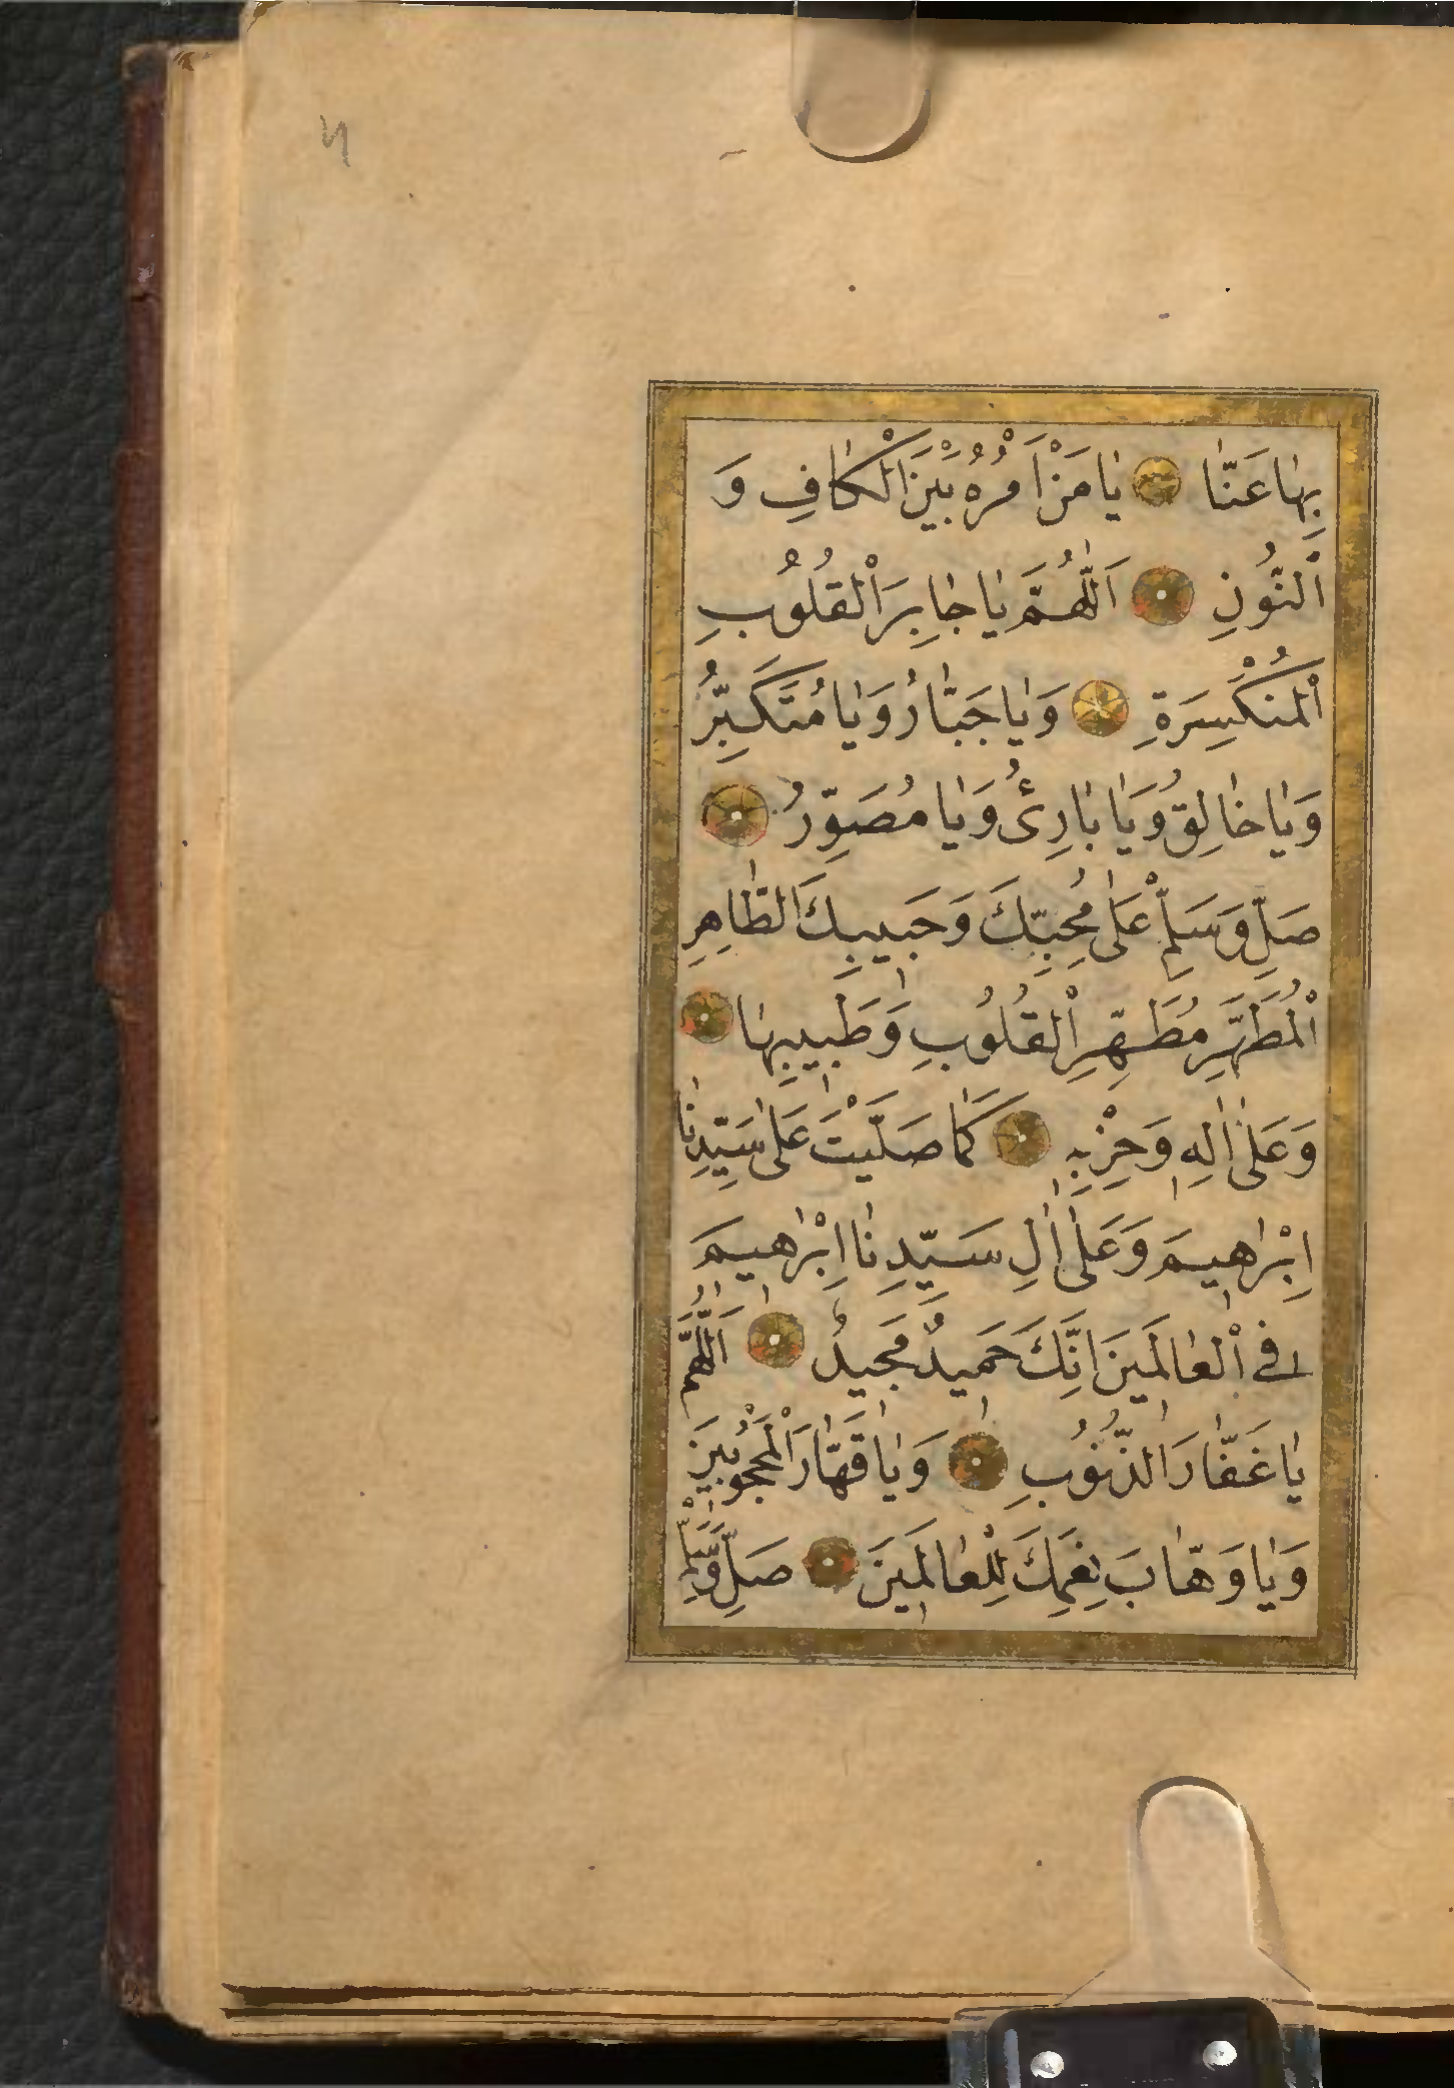 بِهَا عَنَّا يَا مَنْ اَمْرُهُ بَيْنَ الْكَافِ وَ
النُّونِ اَللّٰهُمَّ يَا جَابِرَ الْقُلُوبِ
الْمُنْكَسِرَةِ وَيَا جَبَّارُ وَيَا مُتَكَبِّرُ
وَيَا خَالِقُ وَيَا بَارِئُ وَيَا مُصَوِّرُ
صَلِّ وَسَلِّمْ عَلٰى مُحِبِّكَ وَحَبِيبِكَ الطَّاهِرِ
الْمُطَهَّرِ مُطَهِّرِ الْقُلُوبِ وَطَبِيبِهَا
وَعَلٰى اٰلِهِ وَحِزْبِهِ كَمَا صَلَّيْتَ عَلٰى سَيِّدِنَا
اِبْرٰهِيمَ وَعَلٰى اٰلِ سَيِّدِنَا اِبْرٰهِيمَ
فِي الْعَالَمِينَ اِنَّكَ حَمِيدٌ مَجِيدٌ اَللّٰهُمَّ
يَا غَفَّارَ الذُّنُوبِ وَيَا قَهَّارَ الْمَحْجُوبِينَ
وَيَا وَهَّابَ نِعَمِكَ لِلْعَالَمِينَ صَلِّ وَسَلِّمْ